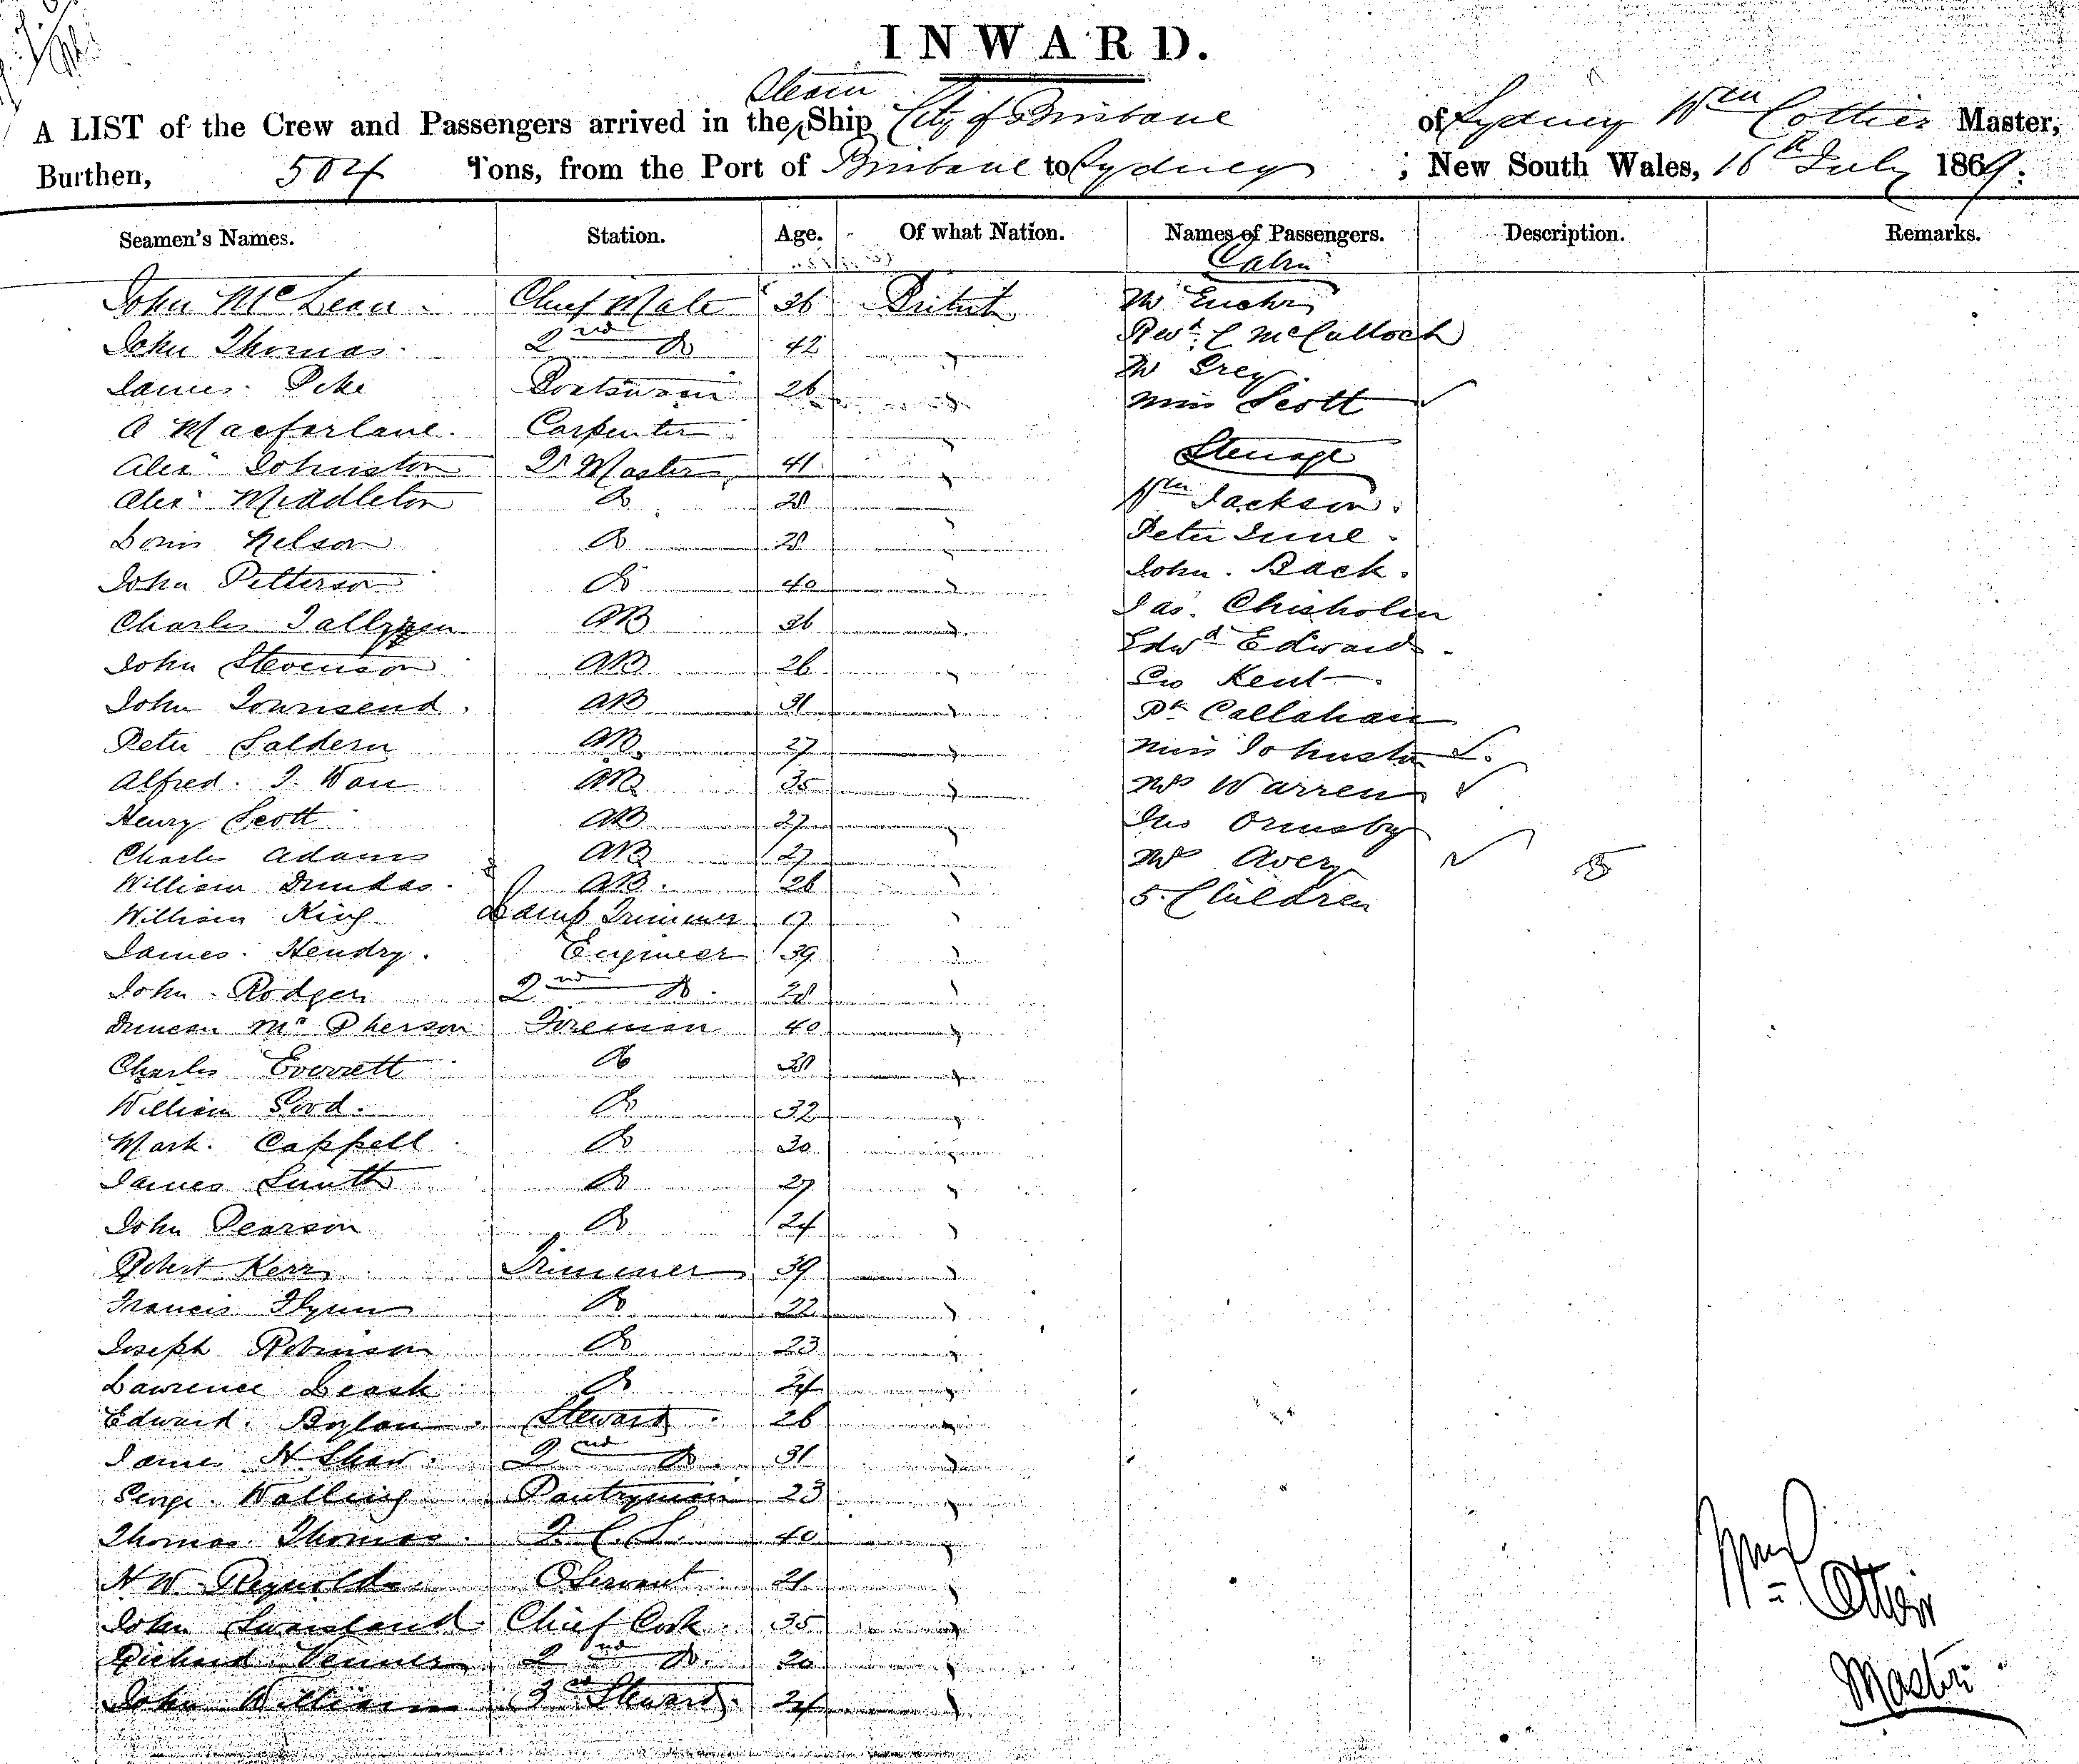 INWARD.
Steam
A LIST of the Crew and Passengers arrived in the Ship City of Brisbane of Sydney Wm Cottier Master,
Burthen, 504 Tons, from the Port of Brisbane to Sydney, New South Wales, 16th July 1869.
Seamen's Names. Station. Age. Of what Nation. Names of Passengers. Description. Remarks.
Cabin
John McLean Chief Mate 36 British Mr
John Thomas 2nd Do 42 " Revd C McCulloch
James Peke Boatswain 26 " Mr Grey
A Macfarlane. Carpenter " Miss Scott ✓
Steerage
Alexr Johnston Qr Master 41 "
Alexr Middleton Do 28 " Wm Jackson.
Nelson Do 28 " Peter June.
John Petterson Do 40 " John. Back.
Charles AB 36 " Jas. Chisholm
John Stevenson AB 26 " Edwd Edwards
John Townsend. AB 31 " Geo Kent
Peter Saldern AB 27 " Pk Callahan
Alfred. J. Wan AB 35 " Miss Johnston ✓
Henry Scott AB 27 " Mrs Warren ✓
Charles Adams AB 27 " Jno Ormsby
William Dundas. AB. 26 " Mrs Avery ✓ 5
William King Lamp Trimmer 17 " 5. Children
James. Hendry. Engineer 39 "
John. Rodger 2nd Do. 28 "
Duncan McPherson Fireman 40 "
Charles Everett Do 38 "
William Do 32 "
Mark. Cappell Do 30 "
James Smith Do 27 "
John Pearson Do 24 "
Robert Kerr Trimmer 39 "
Francis Flynn Do 22 "
Joseph Robinson Do 23 "
Lawrence Leask Do 24 "
Edward. Boylan Steward 26 "
James H. Shaw. 2nd Do. 31 "
George. Walling Pantryman 23 "
Thomas Thomas. F. C. S. 40 "
H W Reynolds. O Servant 21 "
John Swansland Chief Cook. 35 "
Richard Venner 2nd Do. 20 "
John William 3rd Steward. 24 "
Wm Cottier
Master